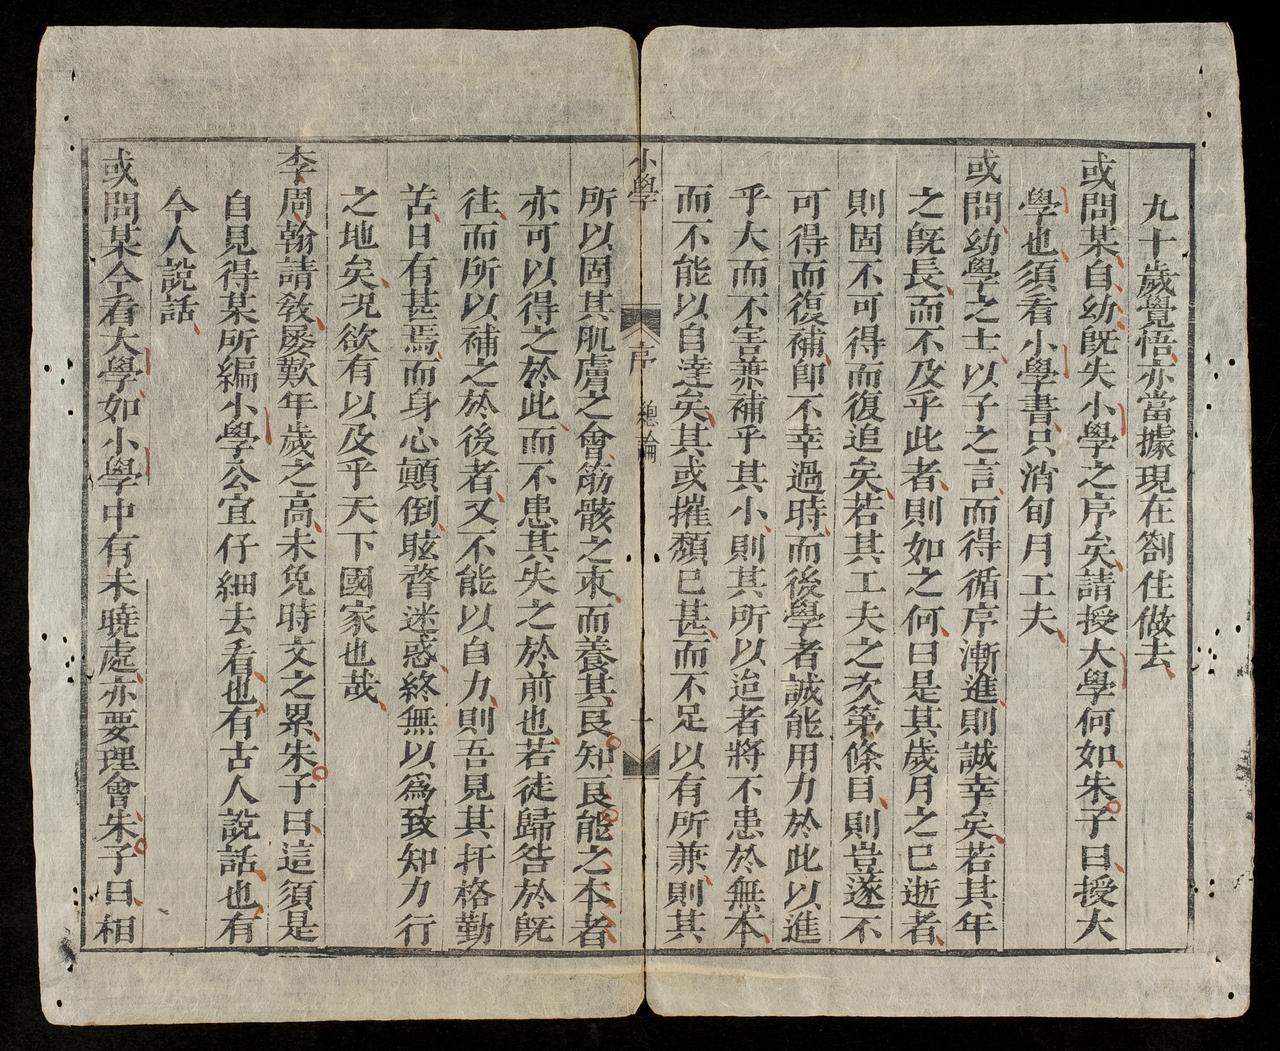 九十歲覺悟亦當據現在劄住做去
或問某自幼旣失小學之序矣請授大學何如朱子曰授大
學也須看小學書只消旬月工夫
或問幼學之士以子之言而得循序漸進則誠幸矣若其年
之旣長而不及乎此者則如之何曰是其歲月之已逝者
則固不可得而復追矣若其工夫之次第條目則豈遂不
可得而復補卽不幸過時而後學者誠能用力於此以進
乎大而不害兼補乎其小則其所以追者將不患於無本
而不能以自達矣其或摧頹已甚而不足以有所兼則其
小學 序 總論 十
所以固其肌膚之會筋骸之束而養其良知良能之本者
亦可以得之於此而不患其失之於前也若徒歸咎於旣
往而所以補之於後者又不能以自力則吾見其扞格勤
苦日有甚焉而身心顚倒眩瞀迷惑終無以爲致知力行
之地矣況欲有以及乎天下國家也哉
李周翰請敎屡歎年歲之高未免時文之累朱子曰這須是
自見得某所編小學公宜仔細去看也有古人說話也有
今人說話
或問某今看大學如小學中有未曉處亦要理會朱子曰相